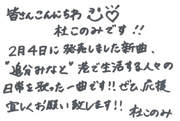 皆さんこんにちわ
杜このみです!!
2月4日に発売しました新曲、
"追分みなと" 港で生活する人々の
日常を歌った一曲です!!ぜひ、応援
宜しくお願い致します!!
杜このみ